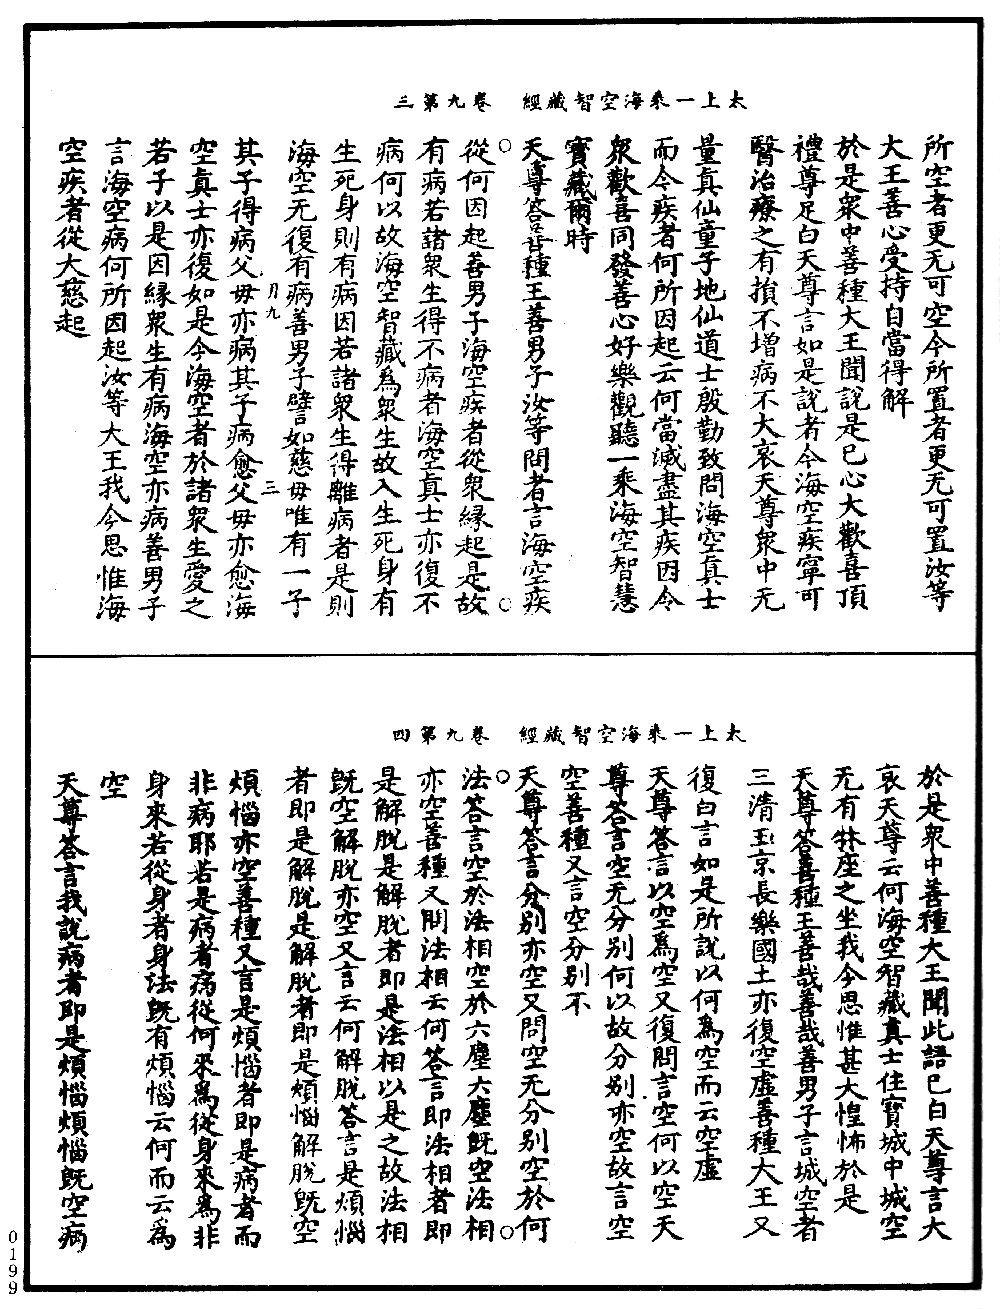 太上一乘海空智藏經 卷九第三
所空者更无可空今所置者更无可置汝等
大王善心受持自當得解
於是衆中善種大王聞說是已心大歡喜頂
禮尊足白天尊言如是說者今海空疾寧可
醫治療之有損不增病不大哀天尊衆中无
量真仙童子地仙道士殷勤致問海空真士
而今疾者何所因起云何當滅盡其疾因令
衆歡喜同發善心好樂觀聽一乘海空智慧
寶藏爾時
天尊答善種王善男子汝等問者言海空疾
從何因起善男子海空疾者從衆緣起是故
有病若諸衆生得不病者海空真士亦復不
病何以故海空智藏爲衆生故入生死身有
生死身則有病因若諸衆生得離病者是則
海空无復有病善男子譬如慈母唯有一子
月九 三
其子得病父母亦病其子病愈父母亦愈海
空真士亦復如是今海空者於諸衆生愛之
若子以是因緣衆生有病海空亦病善男子
言海空病何所因起汝等大王我今思惟海
空疾者從大慈起
太上一乘海空智藏經 卷九第四
於是衆中善種大王聞此語已白天尊言大
哀天尊云何海空智藏真士住寶城中城空
无有牀座之坐我今思惟甚大惶怖於是
天尊答善種王善哉善哉善男子言城空者
三清玉京長樂國土亦復空虛善種大王又
復白言如是所說以何爲空而云空虛
天尊答言以空爲空又復問言空何以空天
尊答言空无分別何以故分別亦空故言空
空善種又言空分別不
天尊答言分別亦空又問空无分別空於何
法答言空於法相空於六塵六塵既空法相
亦空善種又問法相云何答言即法相者即
是解脫是解脫者即是法相以是之故法相
既空解脫亦空又言云何解脫答言是煩惱
者即是解脫是解脫者即是煩惱解脫既空
煩惱亦空善種又言是煩惱者即是病者而
非病耶若是病者病從何來爲從身來爲非
身來若從身者身法既有煩惱云何而云爲
空
天尊答言我說病者即是煩惱煩惱既空病
0199